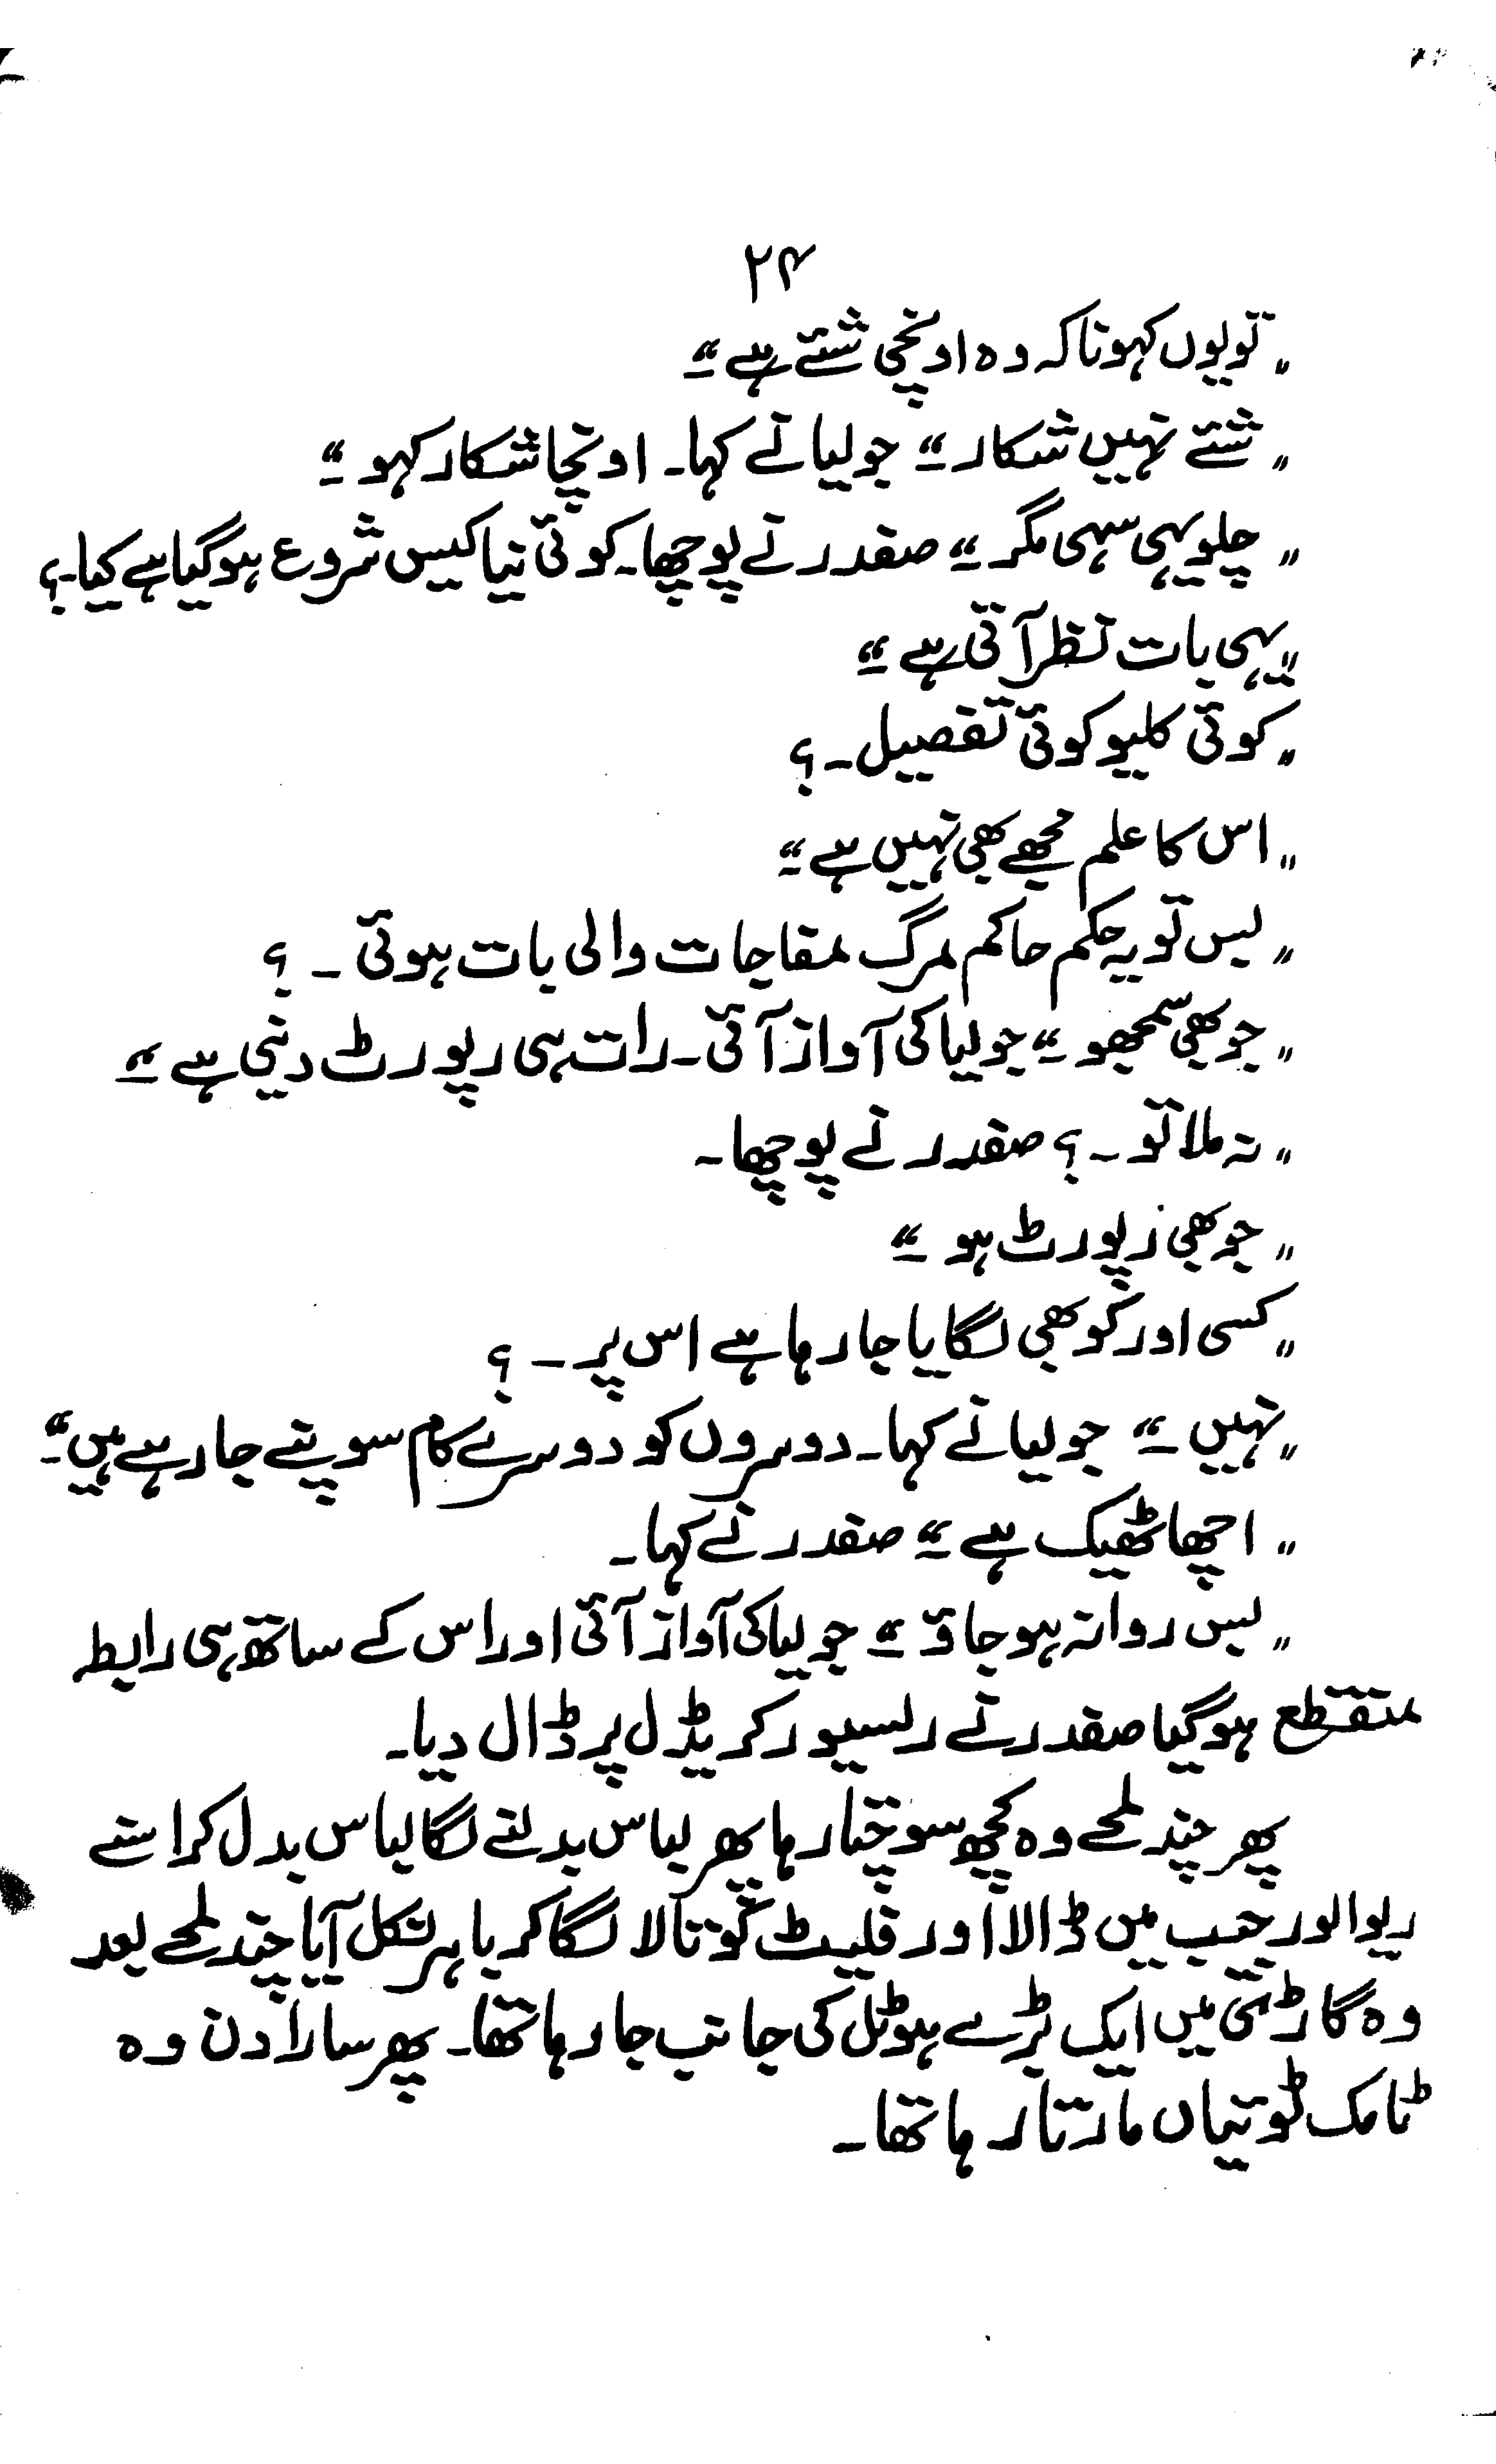 ۲۴
"تویوں کہونا کہ وہ اونچی شئے ہے"
"شئے نہیں شکار" جولیانے کہا۔ اونچا شکار کہو"
"چلو یہی سہی مگر" صفدر نے پوچھا۔ کوئی نیا کیس شروع ہوگیا ہے کیا۔؟
"یہی بات نظر آتی ہے"
"کوئی کلیو کوئی تفصیل۔؟
"اس کا علم مجھے بھی نہیں ہے"
"بس تو یہ حکم حاکم مرگ مفاجات والی بات ہوئی۔؟
"جو بھی سمجھو" جولیا کی آواز آئی۔ رات ہی رپورٹ دینی ہے"
"نہ ملا تو۔؟ صفدر نے پوچھا۔
"جو بھی رپورٹ ہو"
"کسی اور کو بھی لگایا جا رہا ہے اس پر۔؟
"نہیں" جولیا نے کہا۔ دوسروں کو دوسرے کام سونپے جا رہے ہیں"
"اچھا ٹھیک ہے" صفدر نے کہا۔
"بس روانہ ہو جاؤ" جولیا کی آواز آئی اور اس کے ساتھ ہی رابطہ
منقطع ہوگیا صفدر نے رلسیور کریڈل پر ڈال دیا۔
پھر چند لمحے وہ کچھ سوچتا رہا پھر لباس بدلنے لگا لباس بدل کر اسنے
ریوالور جیب میں ڈالا اور فلیٹ کو تالا لگا کر باہر نکل آیا چند لمحے بعد
وہ گاڑی میں ایک بڑے ہوٹل کی جانب جا رہا تھا۔ پھر سارا دن وہ
ٹامک ٹوئیاں مارتا رہا تھا۔